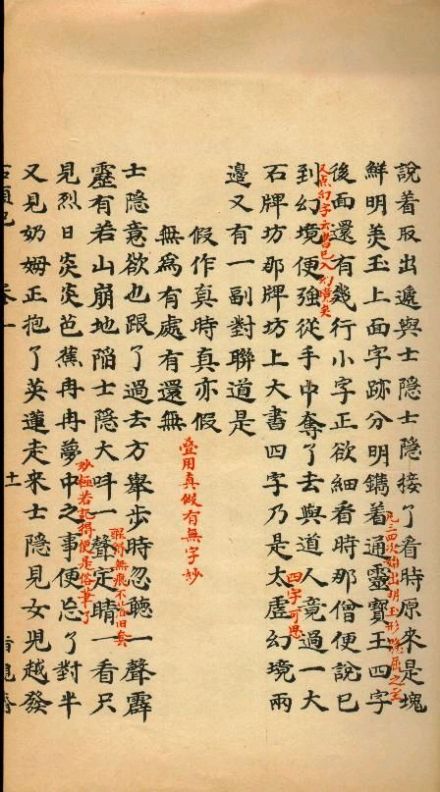 說着取出遞與士隱士隱接了看時原來是塊
鮮明美玉上面字跡分明鐫着通靈寶玉四字
凡三四次始出明玉形隱屈之至
後面還有幾行小字正欲細看時那僧便說已
又點幻字云書已入幻境矣
到幻境便強從手中奪了去與道人竟過一大
石牌坊那牌坊上大書四字乃是太虛幻境兩
四字可思
邊又有一副對聯道是
假作真時真亦假
無為有處有還無
疊用真假有無字妙
士隱意欲也跟了過去方舉步時忽聽一聲霹
靂有若山崩地陷士隱大叫一聲定睛一看只
醒得無痕不落旧套
見烈日炎炎芭蕉冉冉夢中之事便忘了對半
妙極若記得便是俗筆了
又見奶姆正抱了英蓮走來士隱見女兒越發
十一